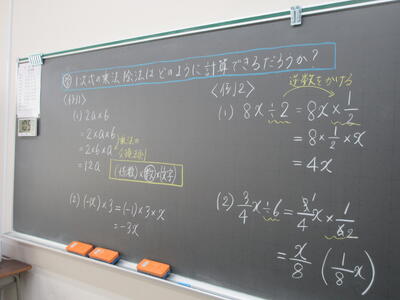 問 1次式の乗法、除法はどのように計算できるだろうか?
〈例1〉
(1) 2a×6
= 2×a×6
= 2×6×a
乗法の
交換法則
= 12a
(係数)×(数)×(文字)
(2) (-x)×3 = (-1)×3×x
= -3x
〈例2〉
逆数をかける
(1) 8x÷2 = 8x×1/2
= 8×1/2×x
= 4x
(2) 3/4x÷6 = 3/4x×1/6
= x/8 (1/8x)